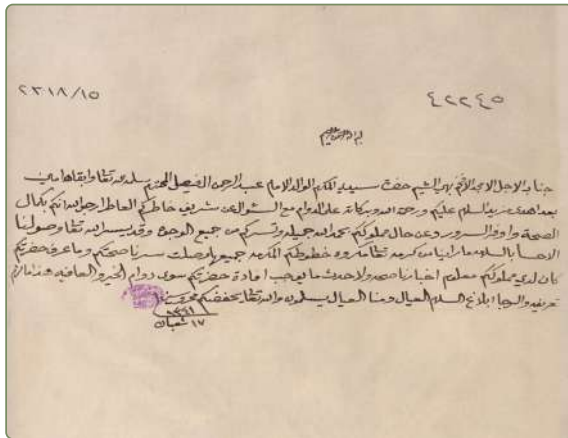 ٤٢٢٤٥
٢٣١٨/١٥
بسم الله الرحمن الرحيم
جناب الاجل الامجد الافخم بهي الشيم حضرت سيدي المكرم الوالد الامام عبد الرحمن الفيصل المحترم سلمه الله تعالى وابقاه امين
بعد اهدى مزيد السلام عليكم ورحمة الله وبركاته على الدوام مع السئوال عن شريف خاطركم العاطر ارجو الله انكم بكمال
الصحة وافر السرور وعن حال مملوككم بحمد الله جميله وتسركم من جميع الوجوه وقد يسر الله تعالى وصولنا
الاحسا بالسلامه من كرمه تعالى خطوطكم المكرمه جميع وصلت سرنا صحتكم وما عرف حضرتكم
كان لدى مملوككم معلوم اخبار ولا حدث ما يوجب افادة حضرتكم سوى دوام الخير والعافيه هذا ما لزم
تعريفه والرجا ابلاغ السلام العيال ومنا العيال يسلمون والله تعالى يحفظكم
١٣٤١
١٧ شعبان